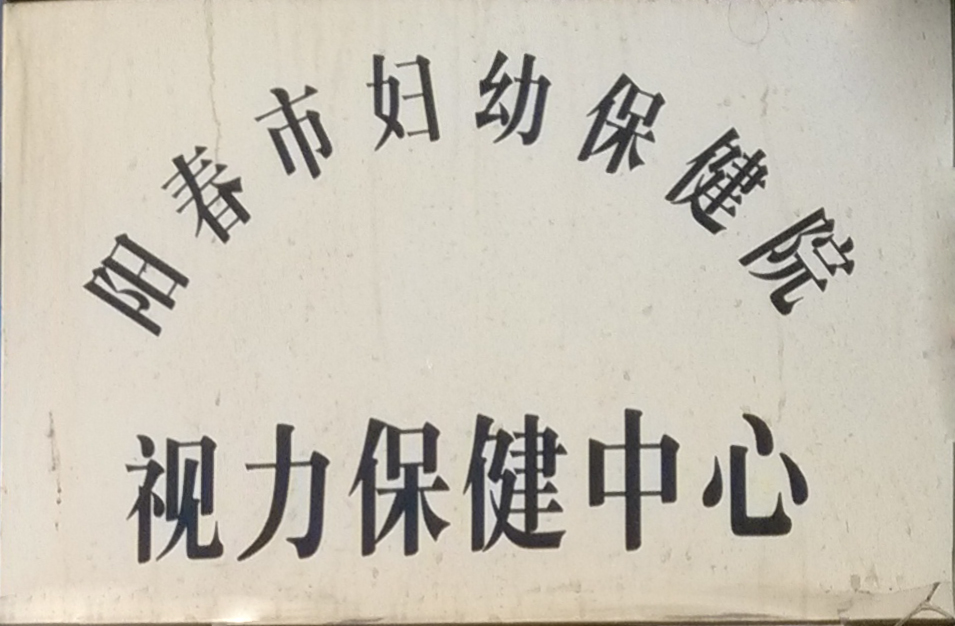 阳春市妇幼保健院
视力保健中心